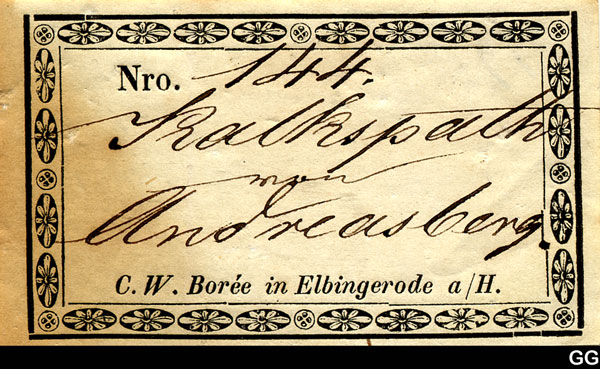 Nro. 144.
Kalkspath
von
Andreasberg.
C. W. Borée in Elbingerode a/H.
GG